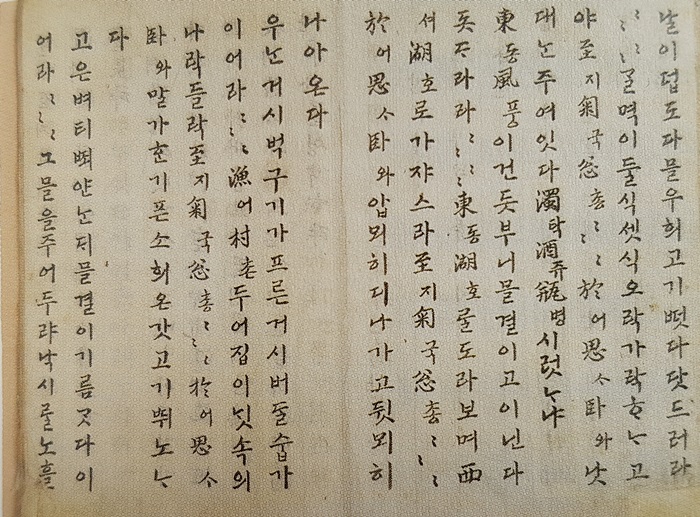 날이덥도다믈우희고기ᄯᅥᆺ다닷드러라
〻〻ᄀᆞᆯ멱이둘식셋식오락가락ᄒᆞᄂᆞ고
야至지菊국怱총〻〻於어思ᄉᆞ臥와낫
대ᄂᆞᆫ주여잇다濁탁酒쥬甁병시럿ᄂᆞ냐
東동風풍이건ᄃᆞᆺ부니믈결이고이닌다
돗ᄃᆞ라라〻〻東동湖호ᄅᆞᆯ도라보며西
셔湖호로가쟈스라至지菊국怱총〻〻
於어思ᄉᆞ臥와압뫼히디나가고뒷뫼히
나아온다
우ᄂᆞᆫ거시벅구기가프른거시버들숩가
이어라〻〻漁어村촌두어집이닛속의
나락들락至지菊국怱총〻〻於어思ᄉᆞ
臥와말가ᄒᆞᆫ기픈소희온갓고기ᄠᅱ노ᄂᆞ
다
고은벼티ᄧᅬ얀ᄂᆞᆫᄃᆡ믈결이기름ᄀᆞᆺ다이
어라〻〻그믈을주어두랴낙시ᄅᆞᆯ노흘